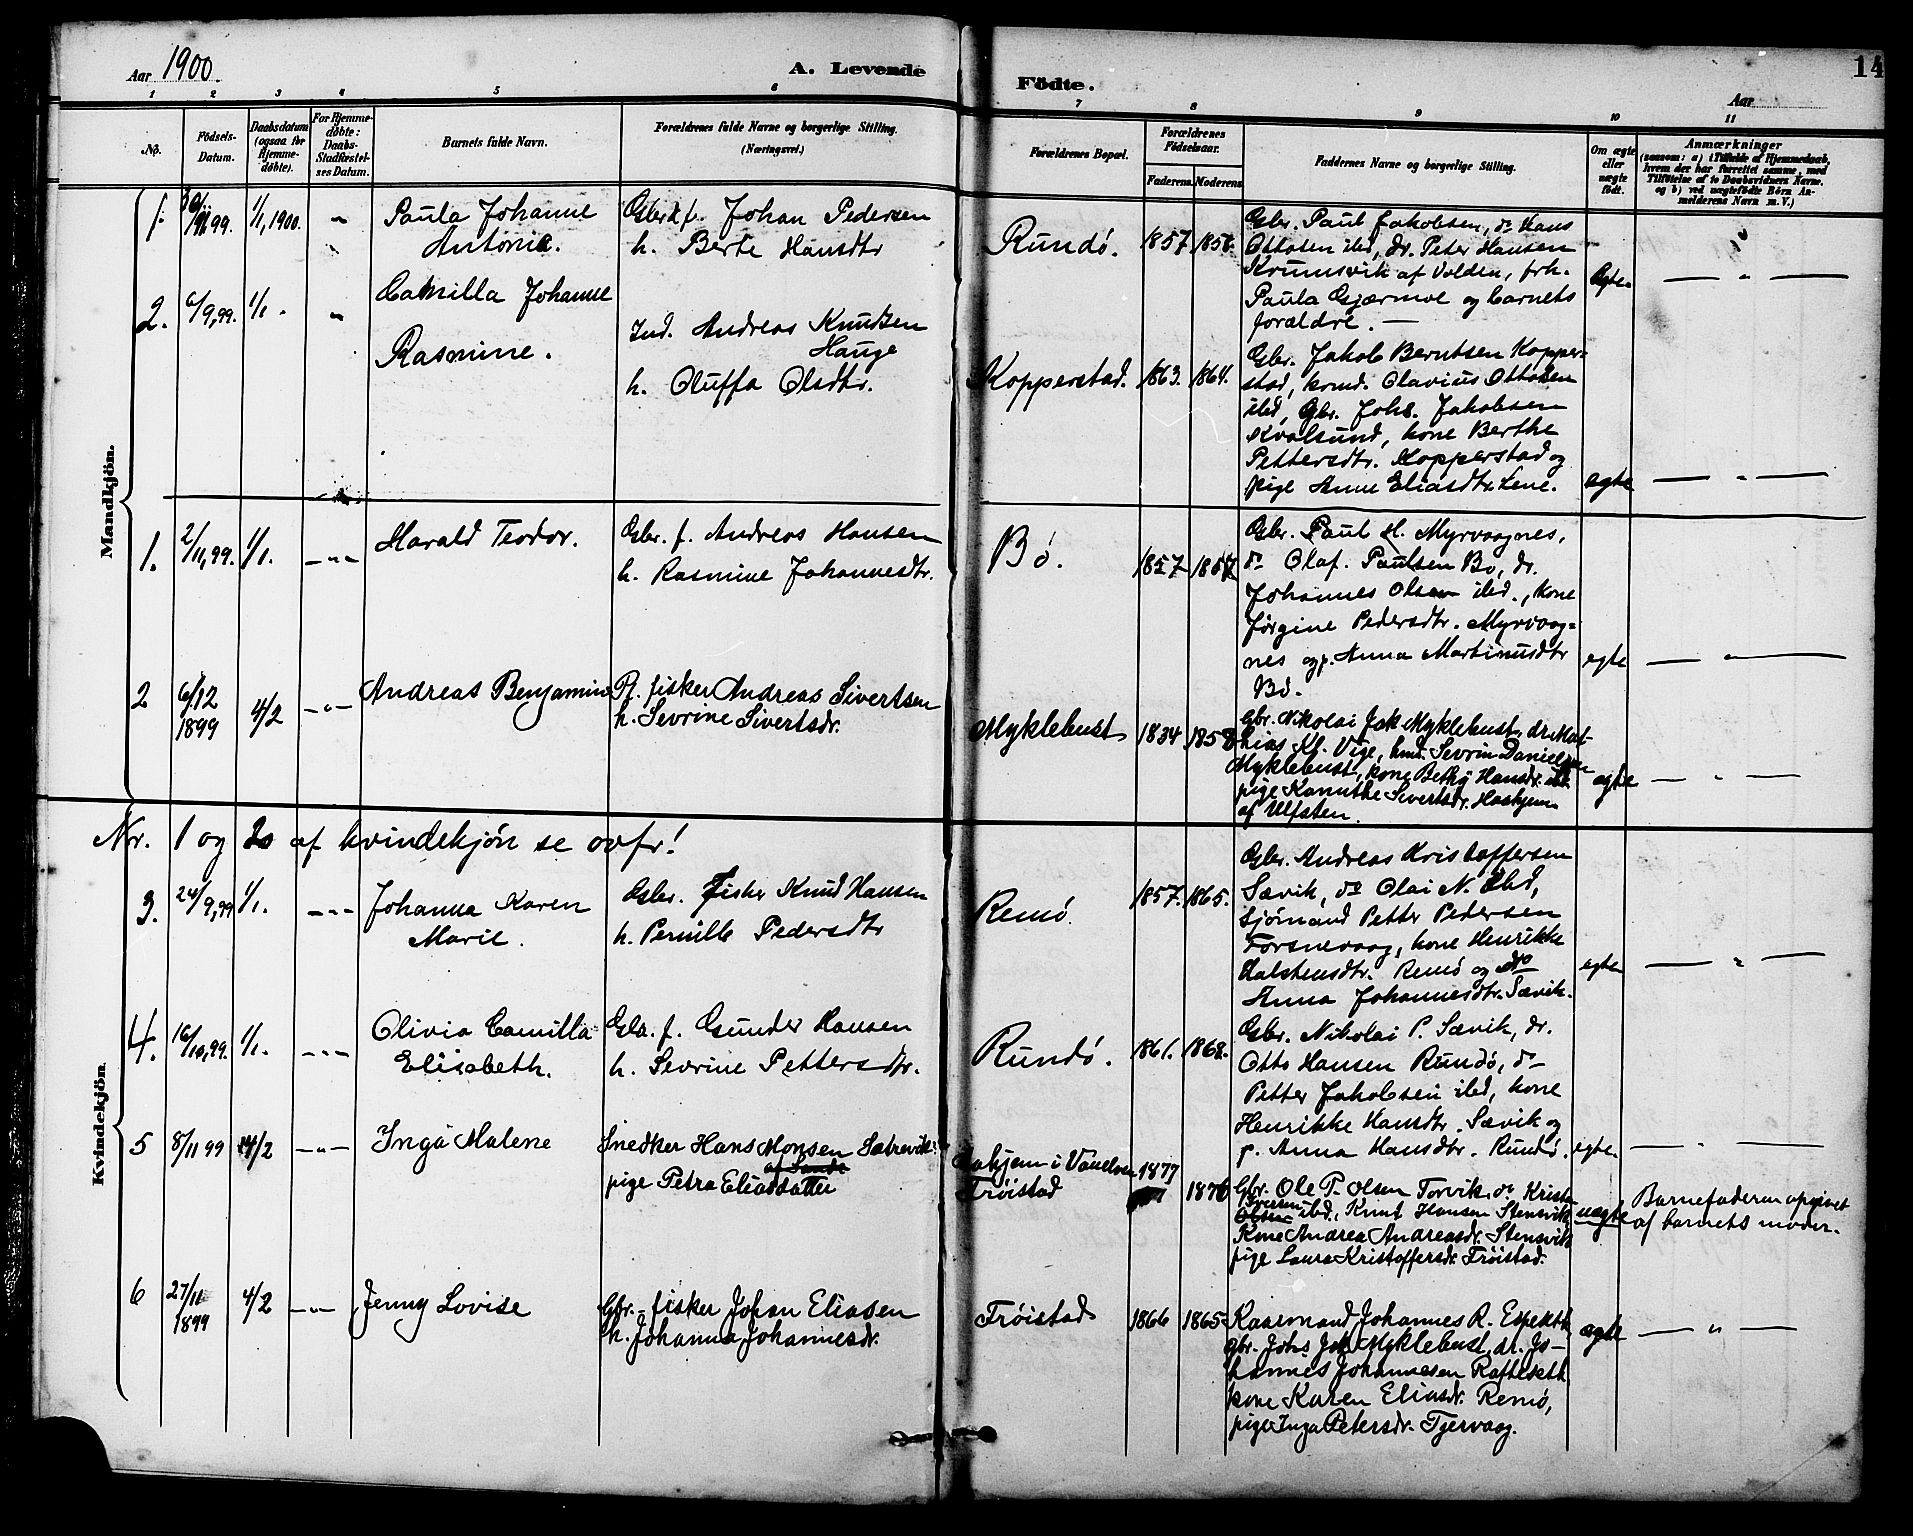 Aar 1900.
A. Levende
Födte.
Aar
14
1 2 3 4 5 6 7 8 9 10 11
No.
Födsels-
Datum.
Daabsdatum
(ogsaa for
Hjemme-
døbte).
For Hjemme-
døbte:
Daabs-
Stadfæstel-
ses Datum.
Barnets fulde Navn.
Forældrenes fulde Navne og borgerlige Stilling.
(Næringsvei.)
Forældrenes Bopæl.
Forældrenes
Födselsaar.
Faderens. Moderens.
Faddernes Navne og borgerlige Stilling.
Om ægte
eller
uægte
født.
Anmærkninger
(saasom: a) i Tilfælde af Hjemmedaab,
hvem der har forrettet samme, med
Tilføielse af to Daabsvidners Navne.
og b) ved uægtefödte Börn An-
melderens Navn m. V.)
Mandkjön.
1. 99. 1/1, 1900. "
Paula Johanne
Antonie.
Gbr. f. Johan Pedersen
h. Berte Hansdtr
Rundö. 1857 1856.
Gbr. Paul Jakobsen, do Hans
Ottosen ibd, dr. Peter Hansen
Krumsvik af Volden, frk.
Paula Gjærmoe og barnets
forældre. —
Ægte — " —
2. 6/9,99. 1/1. "
Camilla Johanne
Rasmine.
Ind. Andreas Knudsen
Hauge
h. Oluffa Olsdtr.
Kopperstad. 1863. 1864.
Gbr. Jakob Berntsen Kopper-
stad, kmd. Olavius Ottosen
ibd, Gbr. Johs. Jakobsen
Kvalsund, kone Berthe
Pettersdtr. Kopperstad og
pige Anne Eliasdtr. Lene.
ægte — " —
1. 2/11,99. 1/1. — " —
Harald Teodor.
Gbr. f. Andreas Hansen
h. Rasmine Johannesdtr.
Bö. 1857 1857
Gbr. Paul H. Myrvaagnes,
do Olaf. Paulsen Bö, dr.
Johannes Olsen ibd., kone
Jörgine Pedersdtr. Myrvaag-
nes og p. Anna Martinusdtr
Bö.
egte — " —
2 6/12
1899 4/2 — " —
Andreas Benjamin
Pl. fisker Andreas Sivertsen
h. Sevrine Sivertsdr.
Myklebust 1834 1858
Gbr. Nikolai Jak Myklebust, dr Mat-
hias Kl. Vige, kmd. Sevrin Danielsen
Myklebust, kone Bethy Hansdr. ibd
pige Kanuthe Sivertsdr. Haskjem
af Ulfsten.
ægte — " —
Kvindekjön.
Nr. 1 og 2 af kvindekjön se ovfr!
3. 24/9,99 1/1. — " —
Johanna Karen
Marie.
Gbr. Fisker Knud Hansen
h. Pernille Pedersdtr
Remö. 1857. 1865.
Gbr. Andreas Kristoffersen
Sævik, do Olai N. ibd,
Sjömand Petter Pedersen
Torsnevaag, kone Henrikke
Halstensdtr. Remö og do
Anna Johannesdtr. Sævik.
egte — " —
4. 16/10,99. 1/1. — " —
Olivia Camilla
Elisabeth.
Gbr. f. Gunder Hansen
h. Sevrine Pettersdtr.
Rundö. 1861. 1868.
Gbr. Nikolai P. Sævik, dr.
Otto Hansen Rundö, do
Petter Jakobsen ibd, kone
Henrikke Hansdtr. Sævik og
p. Anna Hansdtr. Rundö.
egte — " —
5 8/11 99 4/2 — " —
Inga Malene
Snedker Hans Monsen Sætrevik
af Sande
pige Petra Eliasdatter
i Vanelven
Tröistad
1877
1876
Gbr. Ole P. Olsen Torvik, do Kristen
Iversen
Olsen ibd, Knut Hansen Stensvik
Kone Andrea Andreasdr. Stensvik
pige Laura Kristoffersdr. Tröistad.
uægte
Barnefaderen opgivet
af barnets moder.
6 27/11
1899 4/2 — " —
Jenny Lovise
Gbr.-fisker Johan Eliasen
h. Johanna Johannesdr.
Tröistad 1866 1865
Kaarmand Johannes R. Espeseth
Gbr. Johs Jak Myklebust, dr. Jo-
hannes Johannesen Rafteseth
kone Karen Eliasdr. Remö,
pige Inga Petersdr. Tjervaag.
ægte — " —